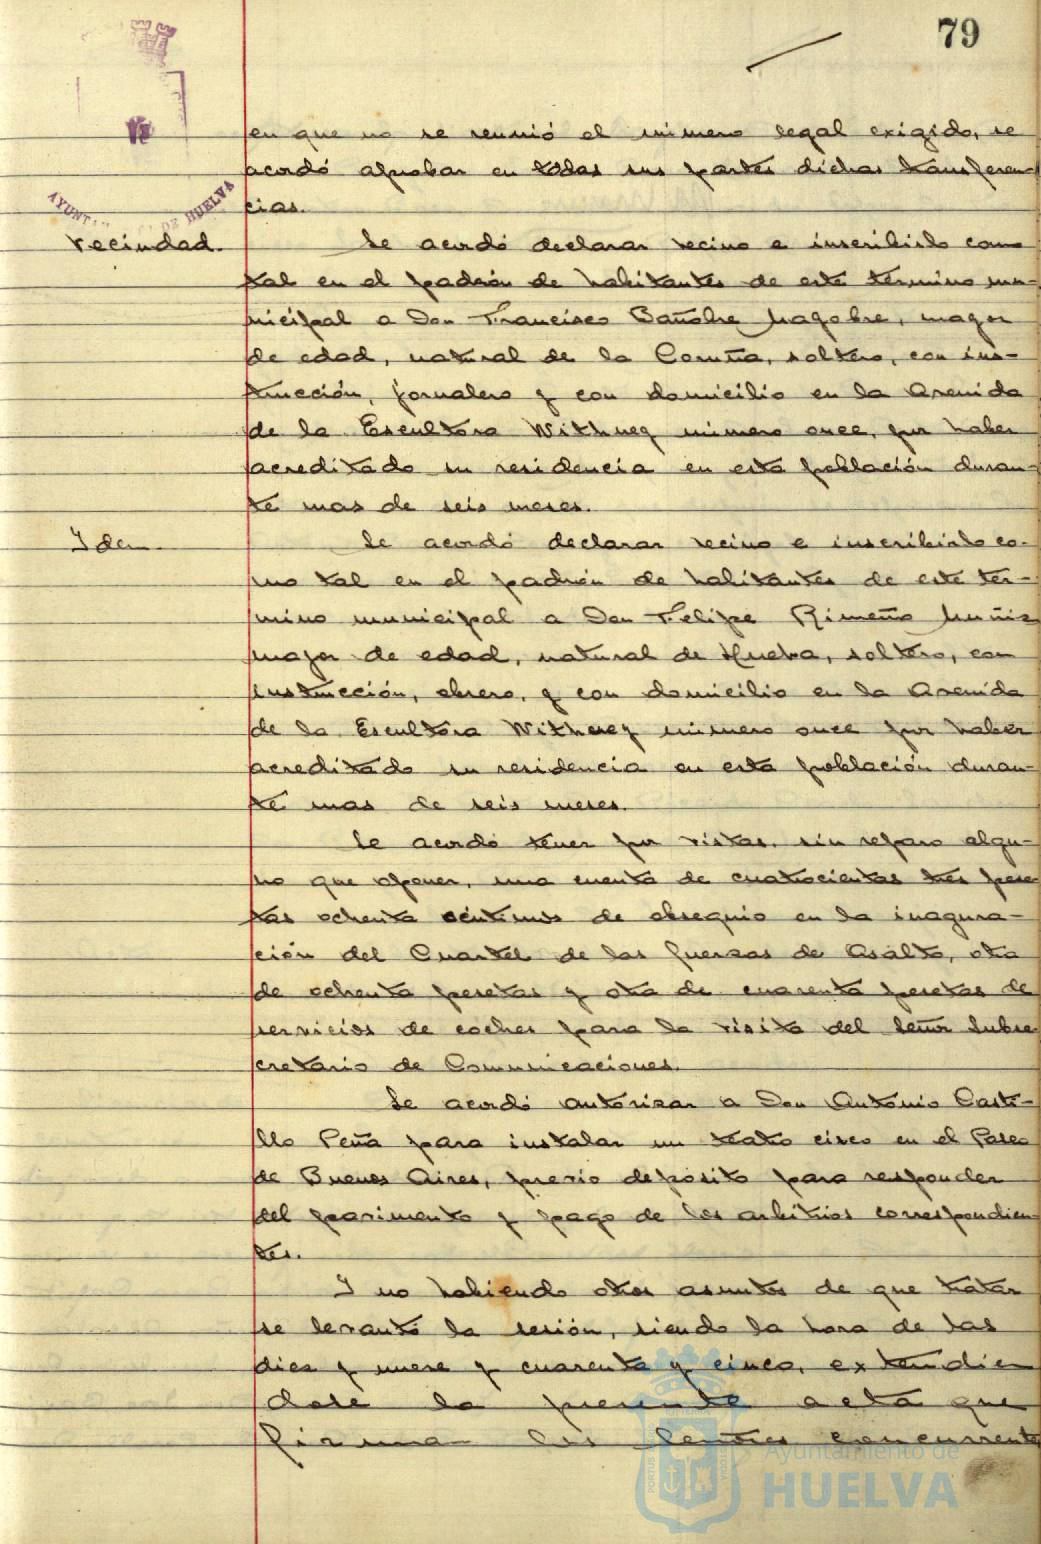 79
en que no se reunió el número legal exigido, se
acordó aprobar en todas sus partes dichas transferen-
cias.
AYUNT DE HUELVA
Vecindad.
Se acordó declarar vecino e inscribirlo como
tal en el padrón de habitantes de este término mu-
nicipal a Don Francisco Bañobre, mayor
de edad, natural de la Coruña, soltero, con ins-
trucción, jornalero y con domicilio en la Avenida
de la Escultora Withney número once, por haber
acreditado su residencia en esta población duran-
te mas de seis meses.
Idem.
Se acordó declarar vecino e inscribirlo co-
mo tal en el padrón de habitantes de este tér-
mino municipal a Don Felipe Rimeño Muñiz
mayor de edad, natural de Huelva, soltero, con
instrucción, obrero, y con domicilio en la Avenida
de la Escultora Withney número once por haber
acreditado su residencia en esta población duran-
te mas de seis meses.
Se acordó tener por vistas, sin reparo algu-
no que oponer, una cuenta de cuatrocientas tres pese
tas ochenta céntimos de obsequio en la inagura-
ción del Cuartel de las fuerzas de Asalto, otra
de ochenta pesetas y otra de cuarenta pesetas de
servicios de coches para la visita del Señor Subse
cretario de Comunicaciones.
Se acordó autorizar a Don Antonio Casti-
llo Peña para instalar un teatro circo en el Paseo
de Buenos Aires, previo depósito para responder
del pavimento y pago de los arbitrios correspondien-
tes.
Y no habiendo otros asuntos de que tratar
se levantó la sesión, siendo la hora de las
diez y nueve y cuarenta y cinco, extendien
dose la presente acta que
firman los Señores concurrentes
Ayuntamiento de
HUELVA